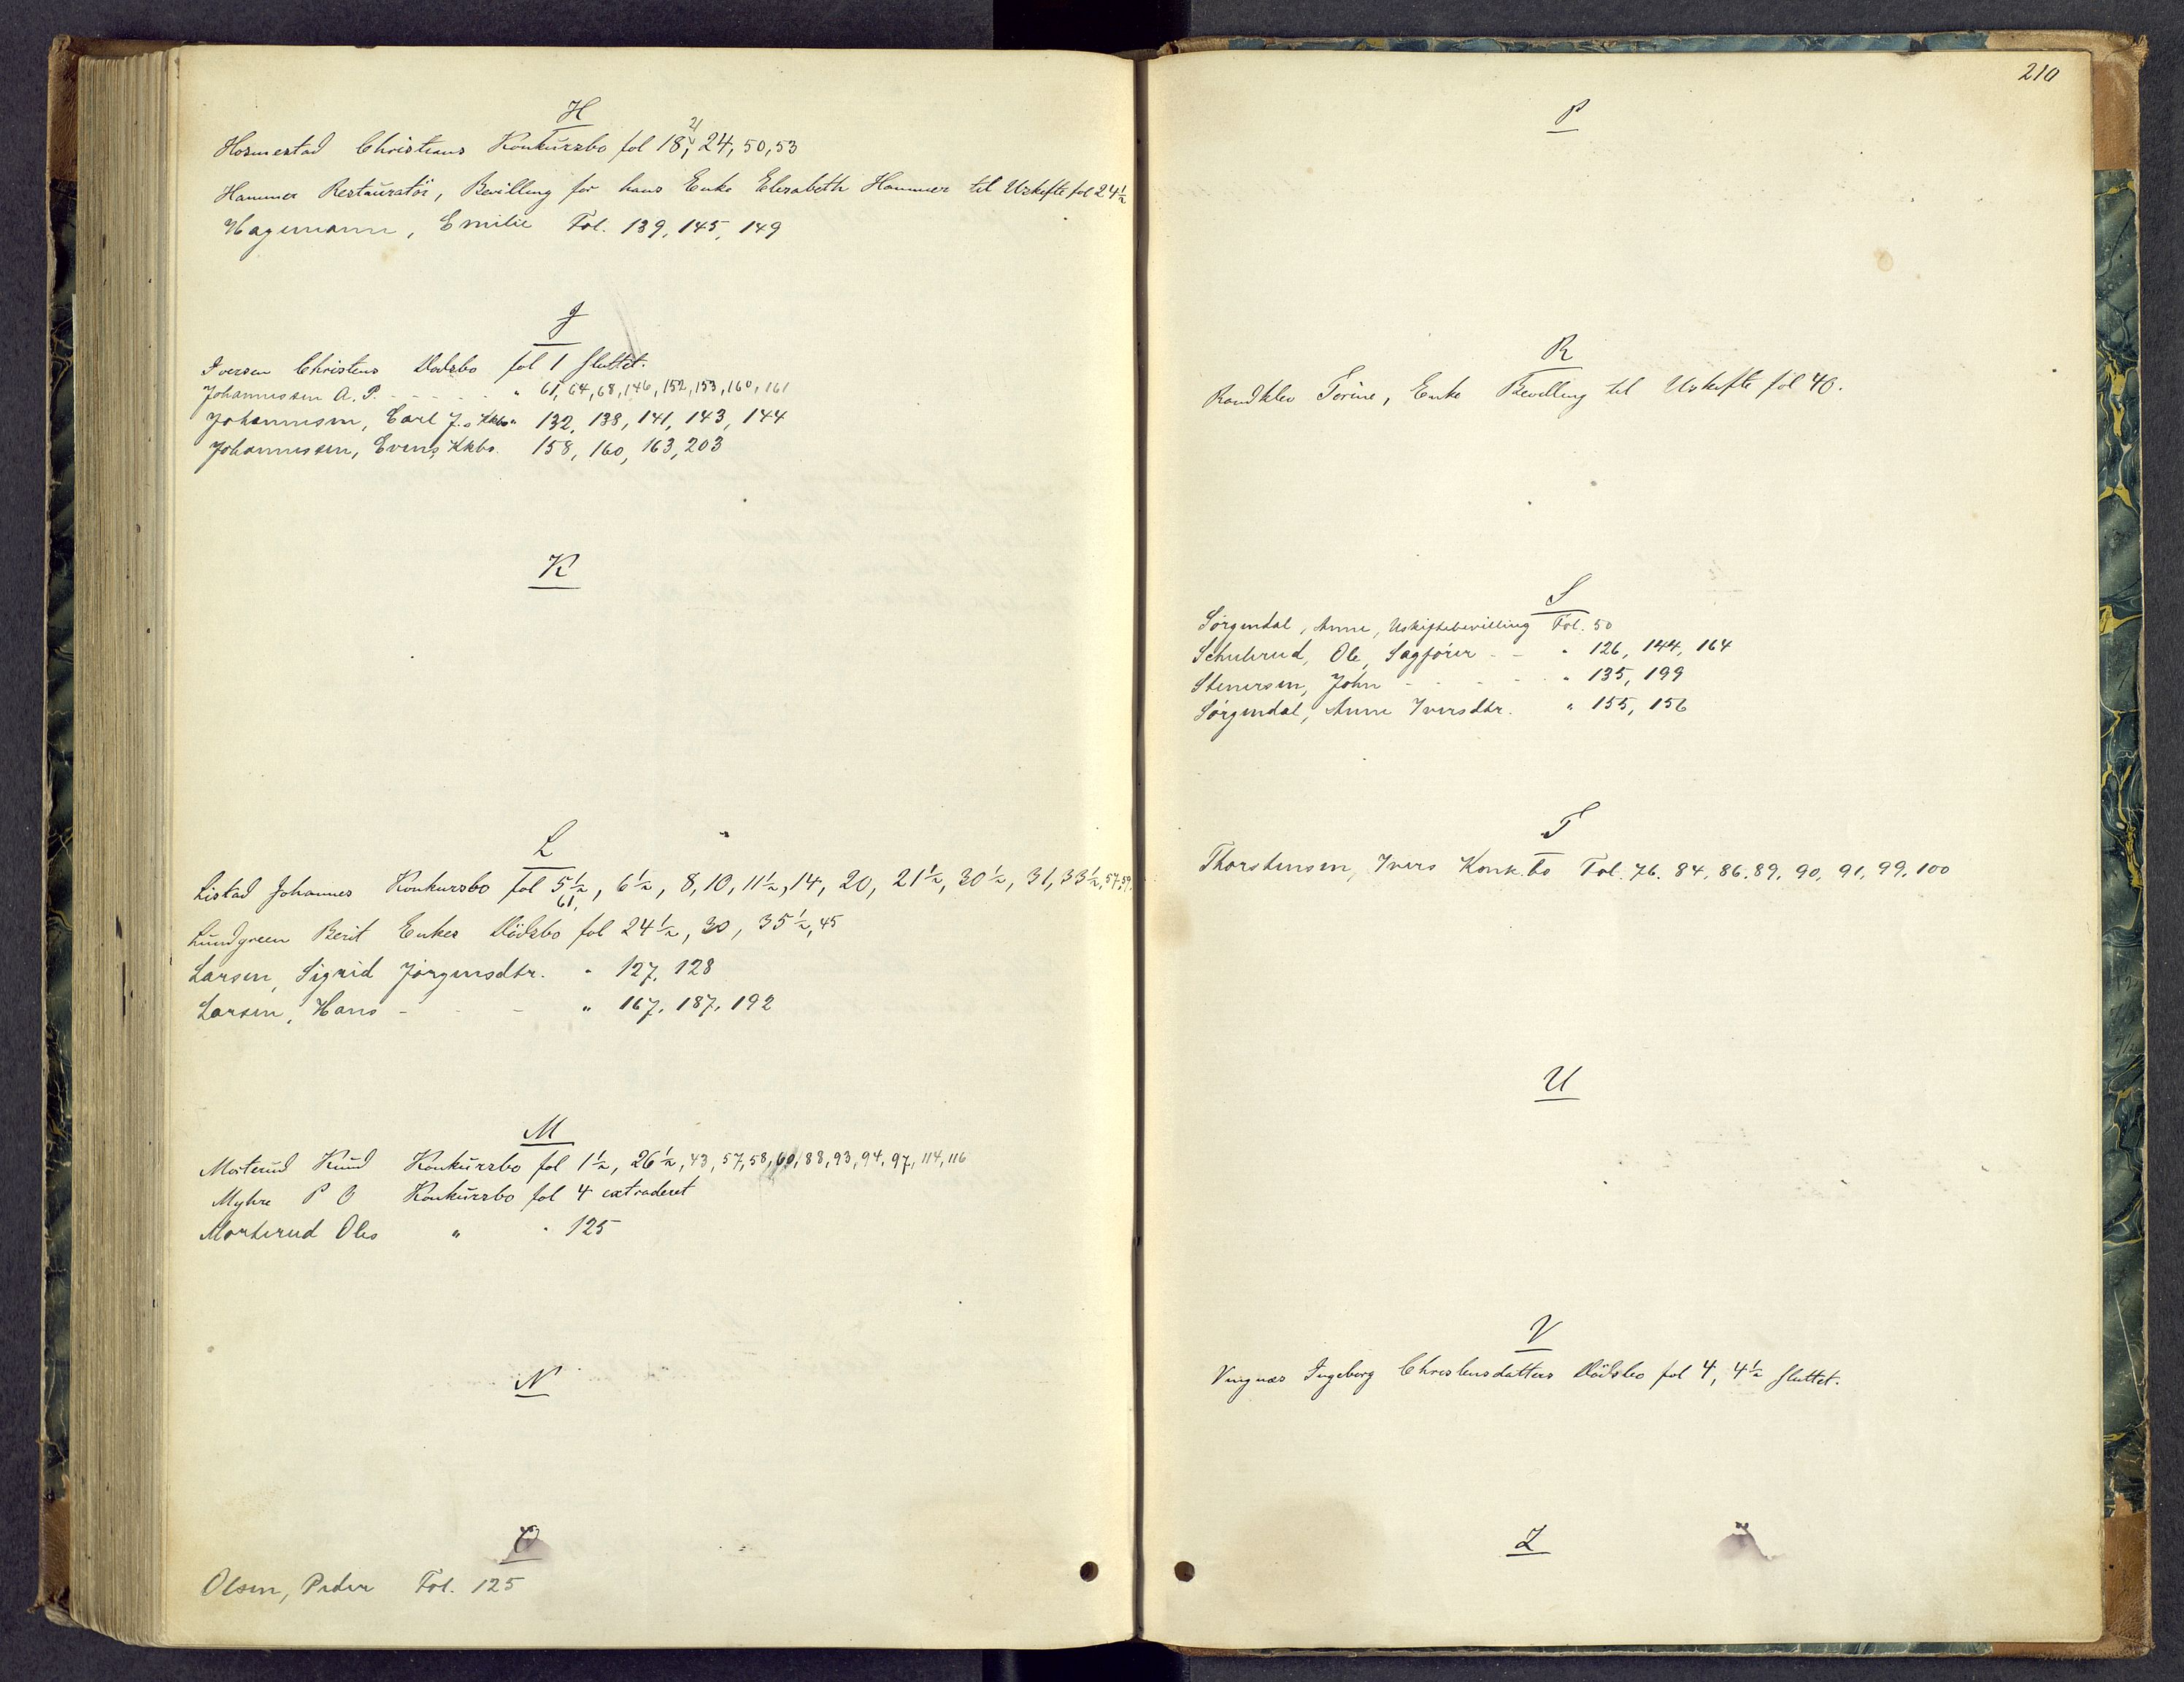 H
Hosmestad Christians Konkursbo fol 18, 21, 24, 50, 53
Hammer Restauratör, Bevilling for hans Enke Elisabeth Hammer til Uskifte fol 24 1/2
Hagemann, Emilie Fol. 139, 145, 149
J
Iversen Christens Dødsbo fol 1 sluttet.
Johannessen A. P. - - - - " 61, 64, 68, 146, 152, 153, 160, 161
Johannesen, Carl J.s Kkbo " 132, 138, 141, 143, 144
Johannessen, Evens Kkbo. 158, 160, 163, 203
K
L
Listad Johannes Konkursbo fol 5 1/2, 6 1/2, 8, 10, 11 1/2, 14, 20, 21 1/2, 30 1/2, 31, 33 1/2, 57, 59,
61,
Lundgreen Berit Enkes Dödsbo fol 24 1/2, 30, 35 1/2, 45
Larsen, Sigrid Jörgensdtr. " 127, 128
Larsen, Hans - - - " 167, 187, 192
M
Morterud Knud Konkursbo fol 1 1/2, 26 1/2, 43, 57, 58, 60, 88, 93, 94, 97, 114, 116
Myhre P O Konkursbo fol 4 extraderet
Morterud Oles " " 125
N
O
Olsen, Peder Fol. 125
210
P
R
Randklev Torine, Enke Bevilling til Uskifte fol 40.
S
Sørgendal, Anne, Uskiftebevilling Fol. 50
Schulerud, Ole, Sagfører - - " 126, 144, 164
Stenersen, John - - - - " 135, 199
Sørgendal, Anne Iversdtr. " 155, 156
T
Thorstensen, Ivers Konk. bo Fol. 76. 84, 86. 89, 90, 91, 99, 100
U
V
Vingnæs Ingeborg Christensdatters Dödsbo fol 4, 4 1/2 sluttet.
Z